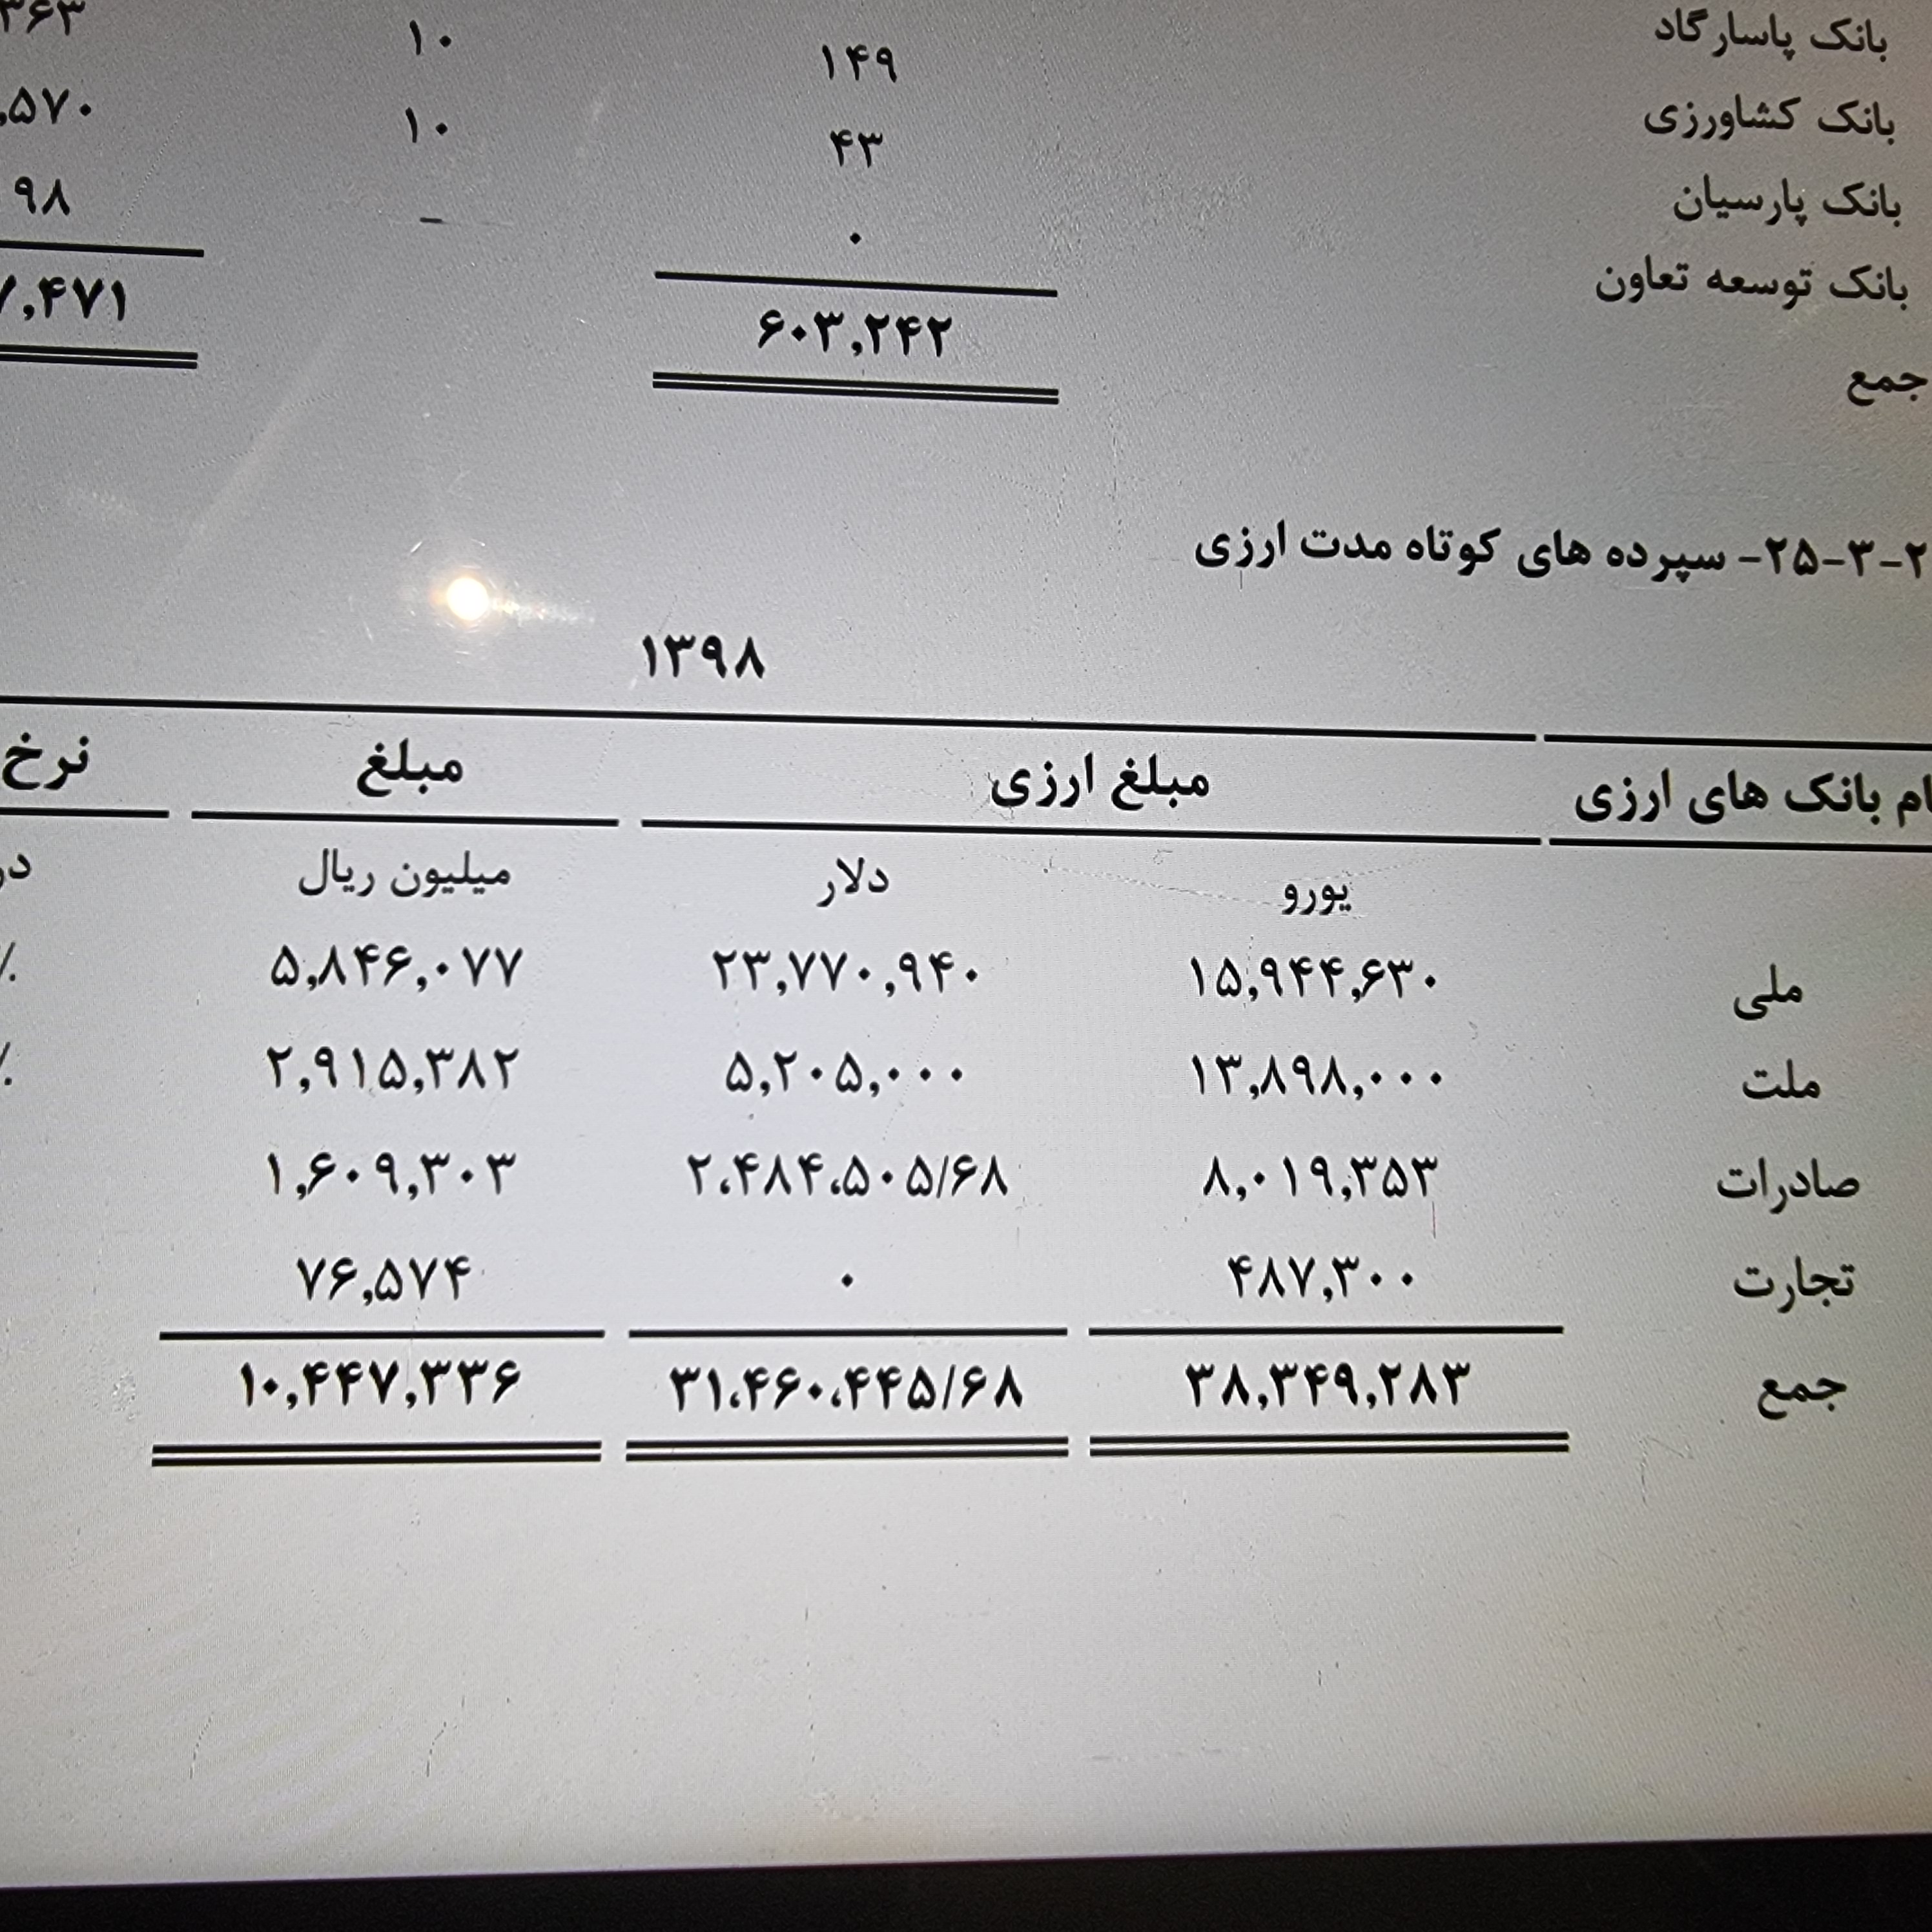 بانک پاسارگاد ۱۴۹ ۱۰ ۳۶۳
بانک کشاورزی ۴۳ ۱۰ ,۵۷۰
بانک پارسیان ۰ - ۹۸
بانک توسعه تعاون
جمع ۶۰۳,۲۴۲ ۷,۴۷۱
۲۵-۳-۲- سپرده های کوتاه مدت ارزی
۱۳۹۸
ام بانک های ارزی مبلغ ارزی مبلغ نرخ
یورو دلار میلیون ریال در
ملی ۱۵,۹۴۴,۶۳۰ ۲۳,۷۷۰,۹۴۰ ۵,۸۴۶,۰۷۷ ٪
ملت ۱۳,۸۹۸,۰۰۰ ۵,۲۰۵,۰۰۰ ۲,۹۱۵,۳۸۲ ٪
صادرات ۸,۰۱۹,۳۵۳ ۲،۴۸۴،۵۰۵/۶۸ ۱,۶۰۹,۳۰۳
تجارت ۴۸۷,۳۰۰ ۰ ۷۶,۵۷۴
جمع ۳۸,۳۴۹,۲۸۳ ۳۱،۴۶۰،۴۴۵/۶۸ ۱۰,۴۴۷,۳۳۶